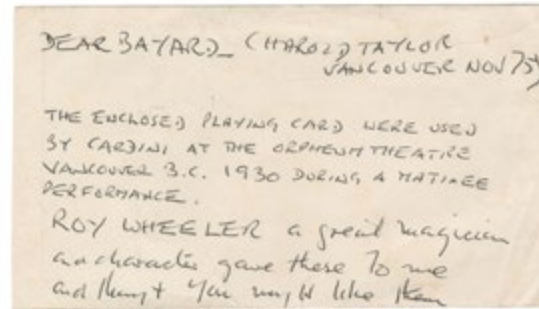 DEAR BAYARD_ (HAROLD TAYLOR
VANCOUVER NOV 75)
THE ENCLOSED PLAYING CARD WERE USED
BY CARDINI AT THE ORPHEUM THEATRE
VANCOUVER B.C. 1930 DURING A MATINEE
PERFORMANCE.
ROY WHEELER a great magician
and character gave these to me
and you might like them